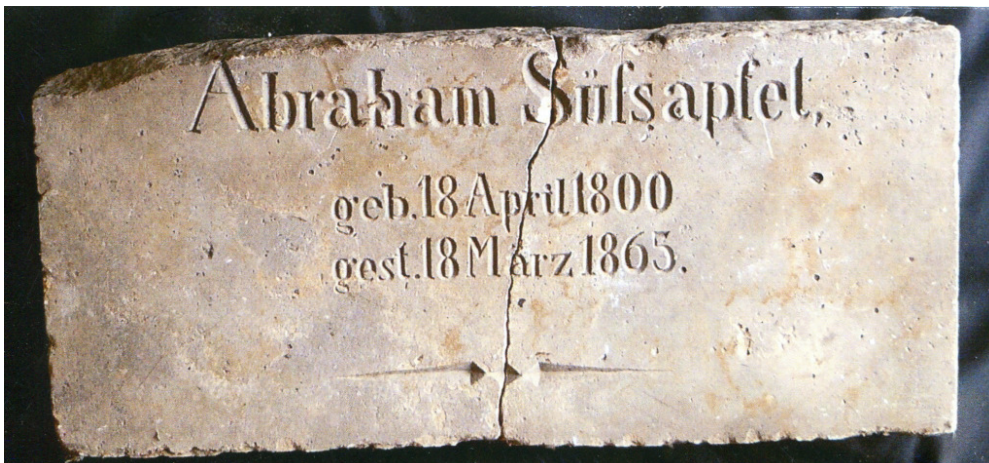 Abraham Süſsapfel,
geb. 18 April 1800
gest. 18 März 1865.